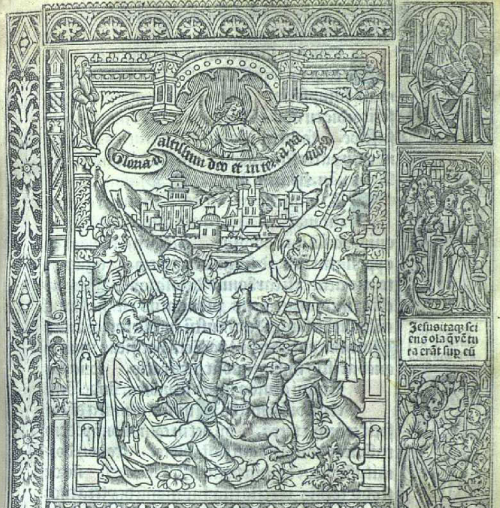 Gloria altissim deo et in terra pa
Jesus itaqz sci
ens oīa q̄ vētu
ra erāt sup eū